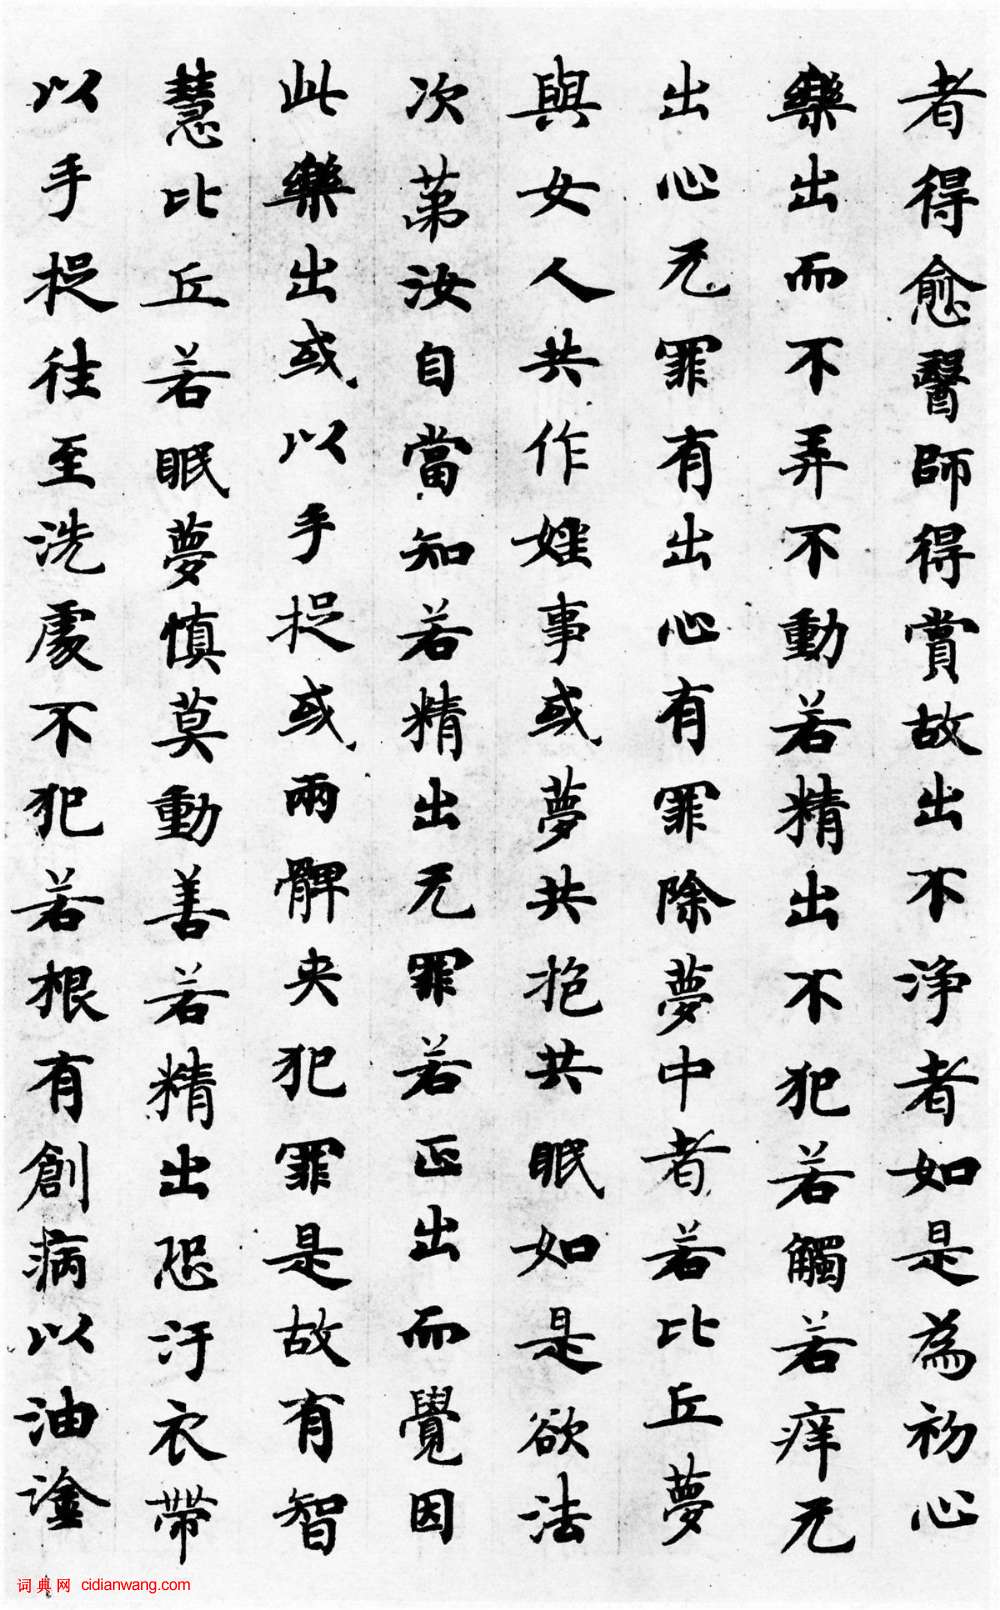 者得愈醫師得賞故出不淨者如是為初心
樂出而不弄不動若精出不犯若觸若痒无
出心无罪有出心有罪除夢中者若比丘夢
與女人共作婬事或夢共抱共眠如是欲法
次第汝自當知若精出无罪若正出而覺因
此樂出或以手捉或兩髀夾犯罪是故有智
慧比丘若眠夢慎莫動善若精出恐汙衣帶
以手捉往至洗處不犯若根有創病以油塗
词典网 cidianwang.com